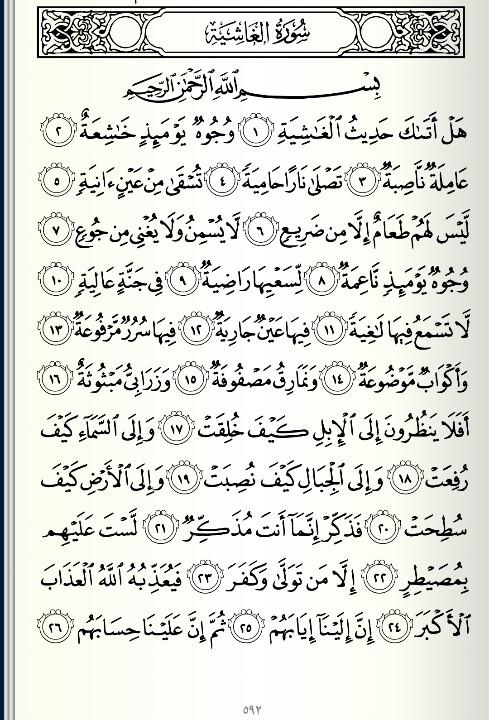 سُورَةُ الغَاشِيَةِ
بِسْمِ اللَّهِ الرَّحْمَٰنِ الرَّحِيمِ
هَلْ أَتَىٰكَ حَدِيثُ الْغَٰشِيَةِ ١ وُجُوهٌ يَوْمَئِذٍ خَٰشِعَةٌ ٢
عَامِلَةٌ نَّاصِبَةٌ ٣ تَصْلَىٰ نَارًا حَامِيَةً ٤ تُسْقَىٰ مِنْ عَيْنٍ ءَانِيَةٍ ٥
لَّيْسَ لَهُمْ طَعَامٌ إِلَّا مِن ضَرِيعٍ ٦ لَّا يُسْمِنُ وَلَا يُغْنِي مِن جُوعٍ ٧
وُجُوهٌ يَوْمَئِذٍ نَّاعِمَةٌ ٨ لِّسَعْيِهَا رَاضِيَةٌ ٩ فِي جَنَّةٍ عَالِيَةٍ ١٠
لَّا تَسْمَعُ فِيهَا لَٰغِيَةً ١١ فِيهَا عَيْنٌ جَارِيَةٌ ١٢ فِيهَا سُرُرٌ مَّرْفُوعَةٌ ١٣
وَأَكْوَابٌ مَّوْضُوعَةٌ ١٤ وَنَمَارِقُ مَصْفُوفَةٌ ١٥ وَزَرَابِيُّ مَبْثُوثَةٌ ١٦
أَفَلَا يَنظُرُونَ إِلَى الْإِبِلِ كَيْفَ خُلِقَتْ ١٧ وَإِلَى السَّمَاءِ كَيْفَ
رُفِعَتْ ١٨ وَإِلَى الْجِبَالِ كَيْفَ نُصِبَتْ ١٩ وَإِلَى الْأَرْضِ كَيْفَ
سُطِحَتْ ٢٠ فَذَكِّرْ إِنَّمَا أَنتَ مُذَكِّرٌ ٢١ لَّسْتَ عَلَيْهِم
بِمُصَيْطِرٍ ٢٢ إِلَّا مَن تَوَلَّىٰ وَكَفَرَ ٢٣ فَيُعَذِّبُهُ اللَّهُ الْعَذَابَ
الْأَكْبَرَ ٢٤ إِنَّ إِلَيْنَا إِيَابَهُمْ ٢٥ ثُمَّ إِنَّ عَلَيْنَا حِسَابَهُم ٢٦
٥٩٢